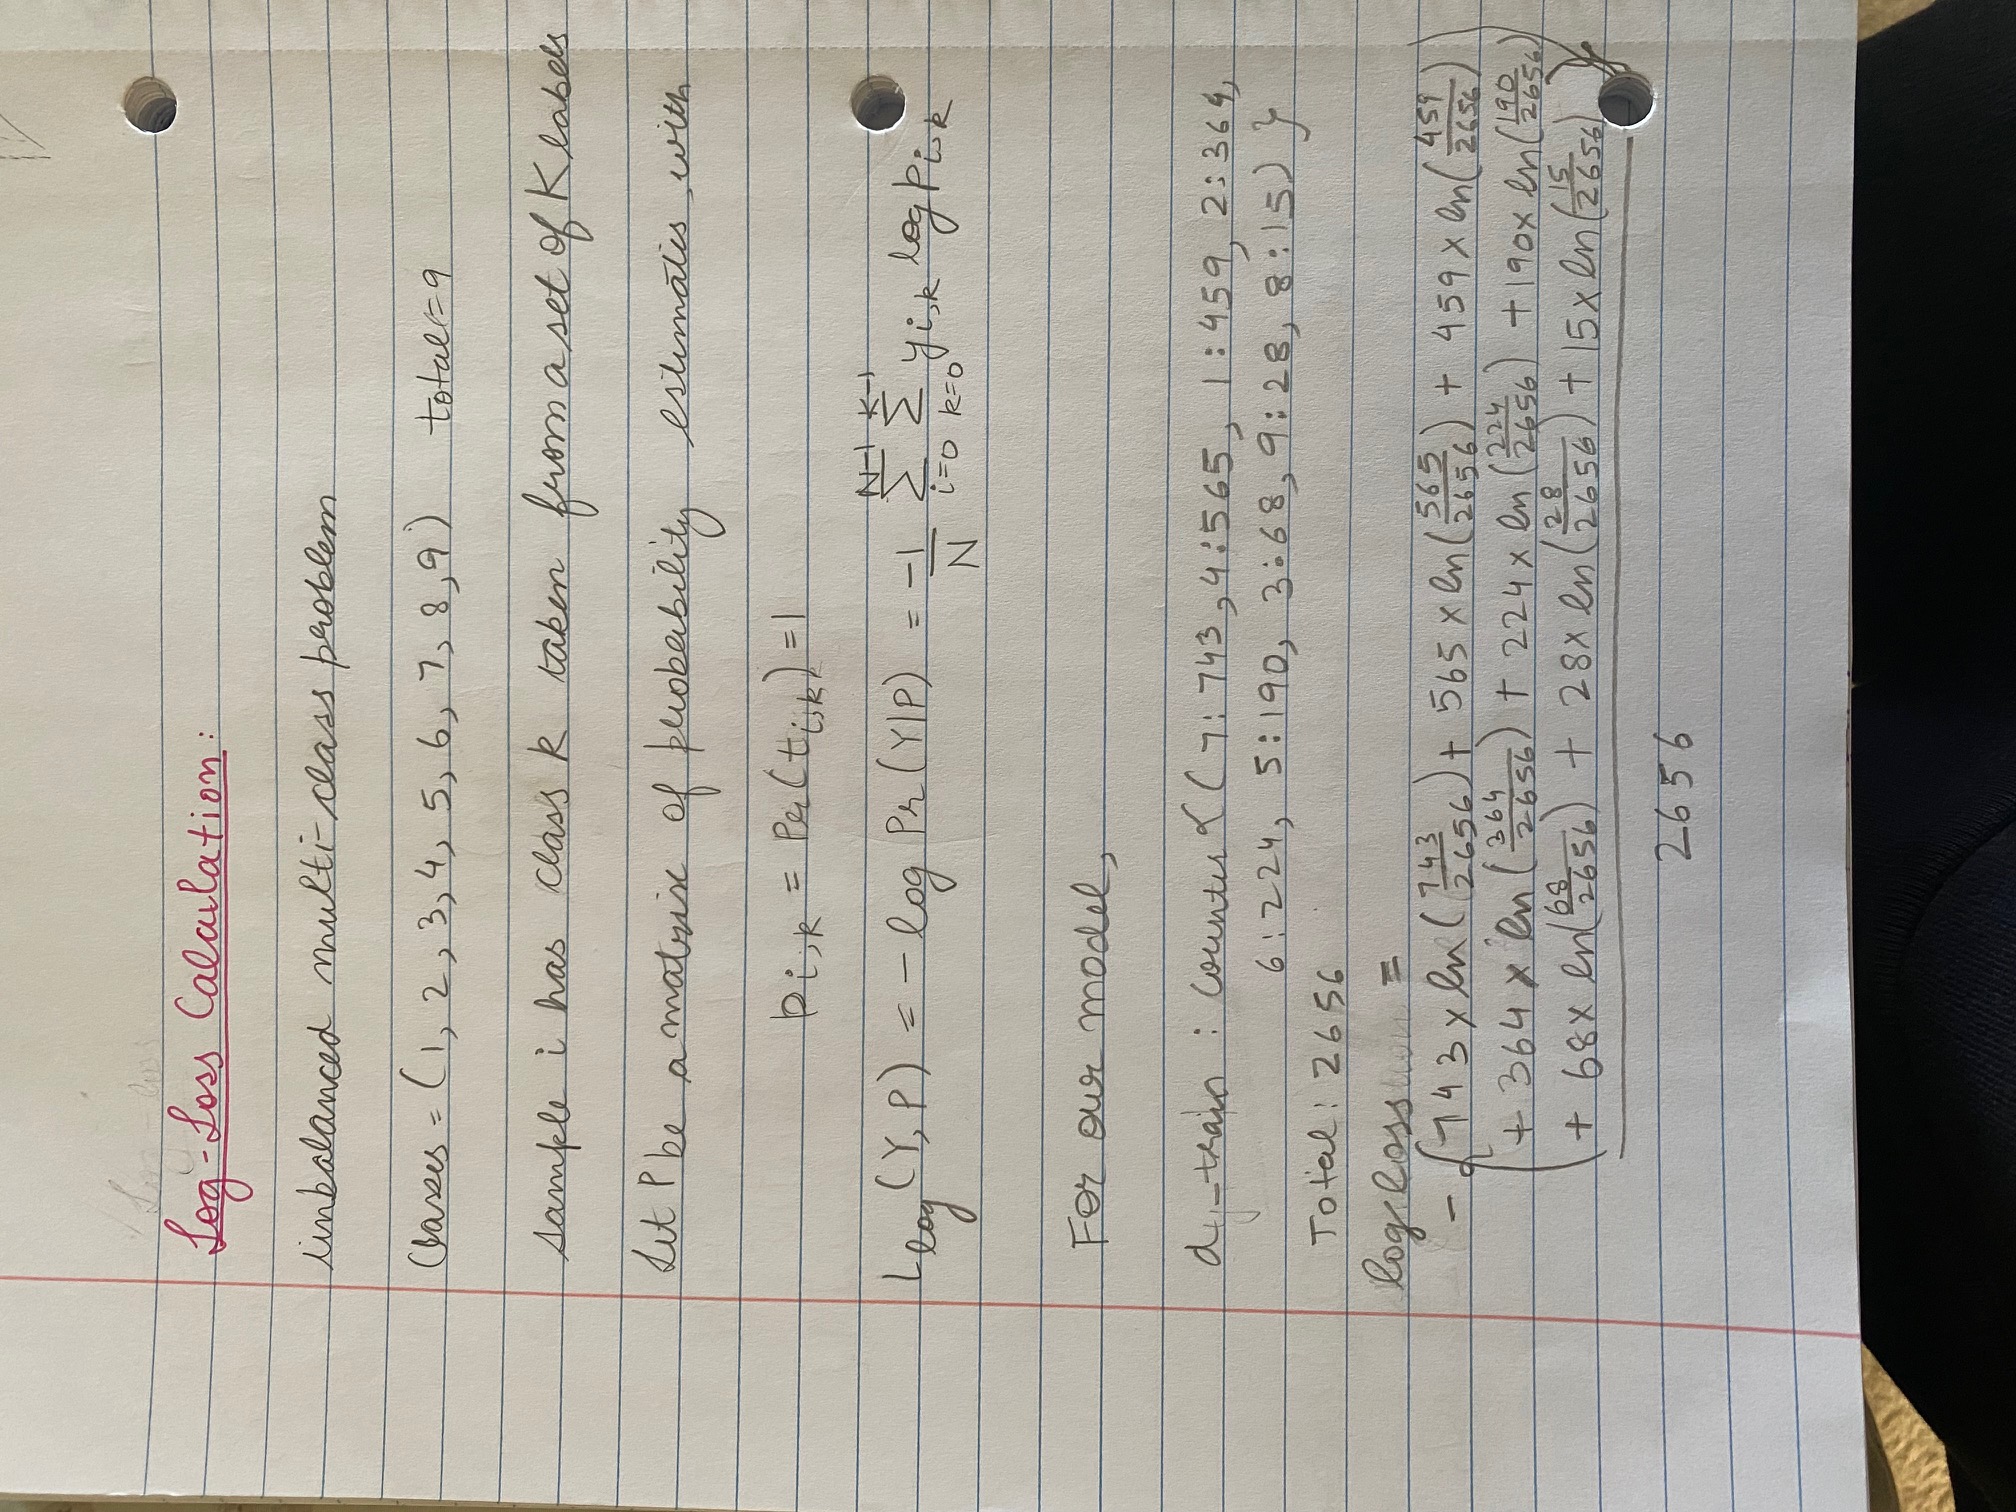 Log-Loss
Log-Loss Calculation:
imbalanced multi-class problem
Classes = (1, 2, 3, 4, 5, 6, 7, 8, 9) total = 9
sample i has class k taken from a set of K labels
Let P be a matrix of probability estimates, with
p_{i,k} = Pr(t_{i,k}) = 1
L_{log}(Y, P) = -log Pr(Y|P) = \frac{-1}{N} \sum_{i=0}^{N-1} \sum_{k=0}^{K-1} y_{i,k} log p_{i,k}
For our model,
d_y_train : Counter {(7:743, 4:565, 1:459, 2:364,
6:224, 5:190, 3:68, 9:28, 8:15)}
Total: 2656
log loss =
- {743 x ln(743/2656) + 565 x ln(565/2656) + 459 x ln(459/2656)
+ 364 x ln(364/2656) + 224 x ln(224/2656) + 190 x ln(190/2656)
+ 68 x ln(68/2656) + 28 x ln(28/2656) + 15 x ln(15/2656)}
2656